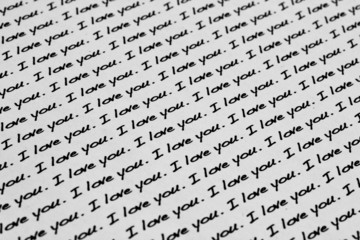 I love you. I love you.
I love you. I love you. I love you.
I love you. I love you. I love you. I love you.
I love you. I love you. I love you. I love you. I love you.
I love you. I love you. I love you. I love you. I love you.
I love you. I love you. I love you. I love you. I love you.
I love you. I love you. I love you. I love you. I love you.
I love you. I love you. I love you. I love you.
I love you. I love you. I love you. I love you.
I love you. I love you. I love you. I love you.
I love you. I love you. I love you. I love you.
I love you. I love you. I love you.
I love you. I love you.
I love you.